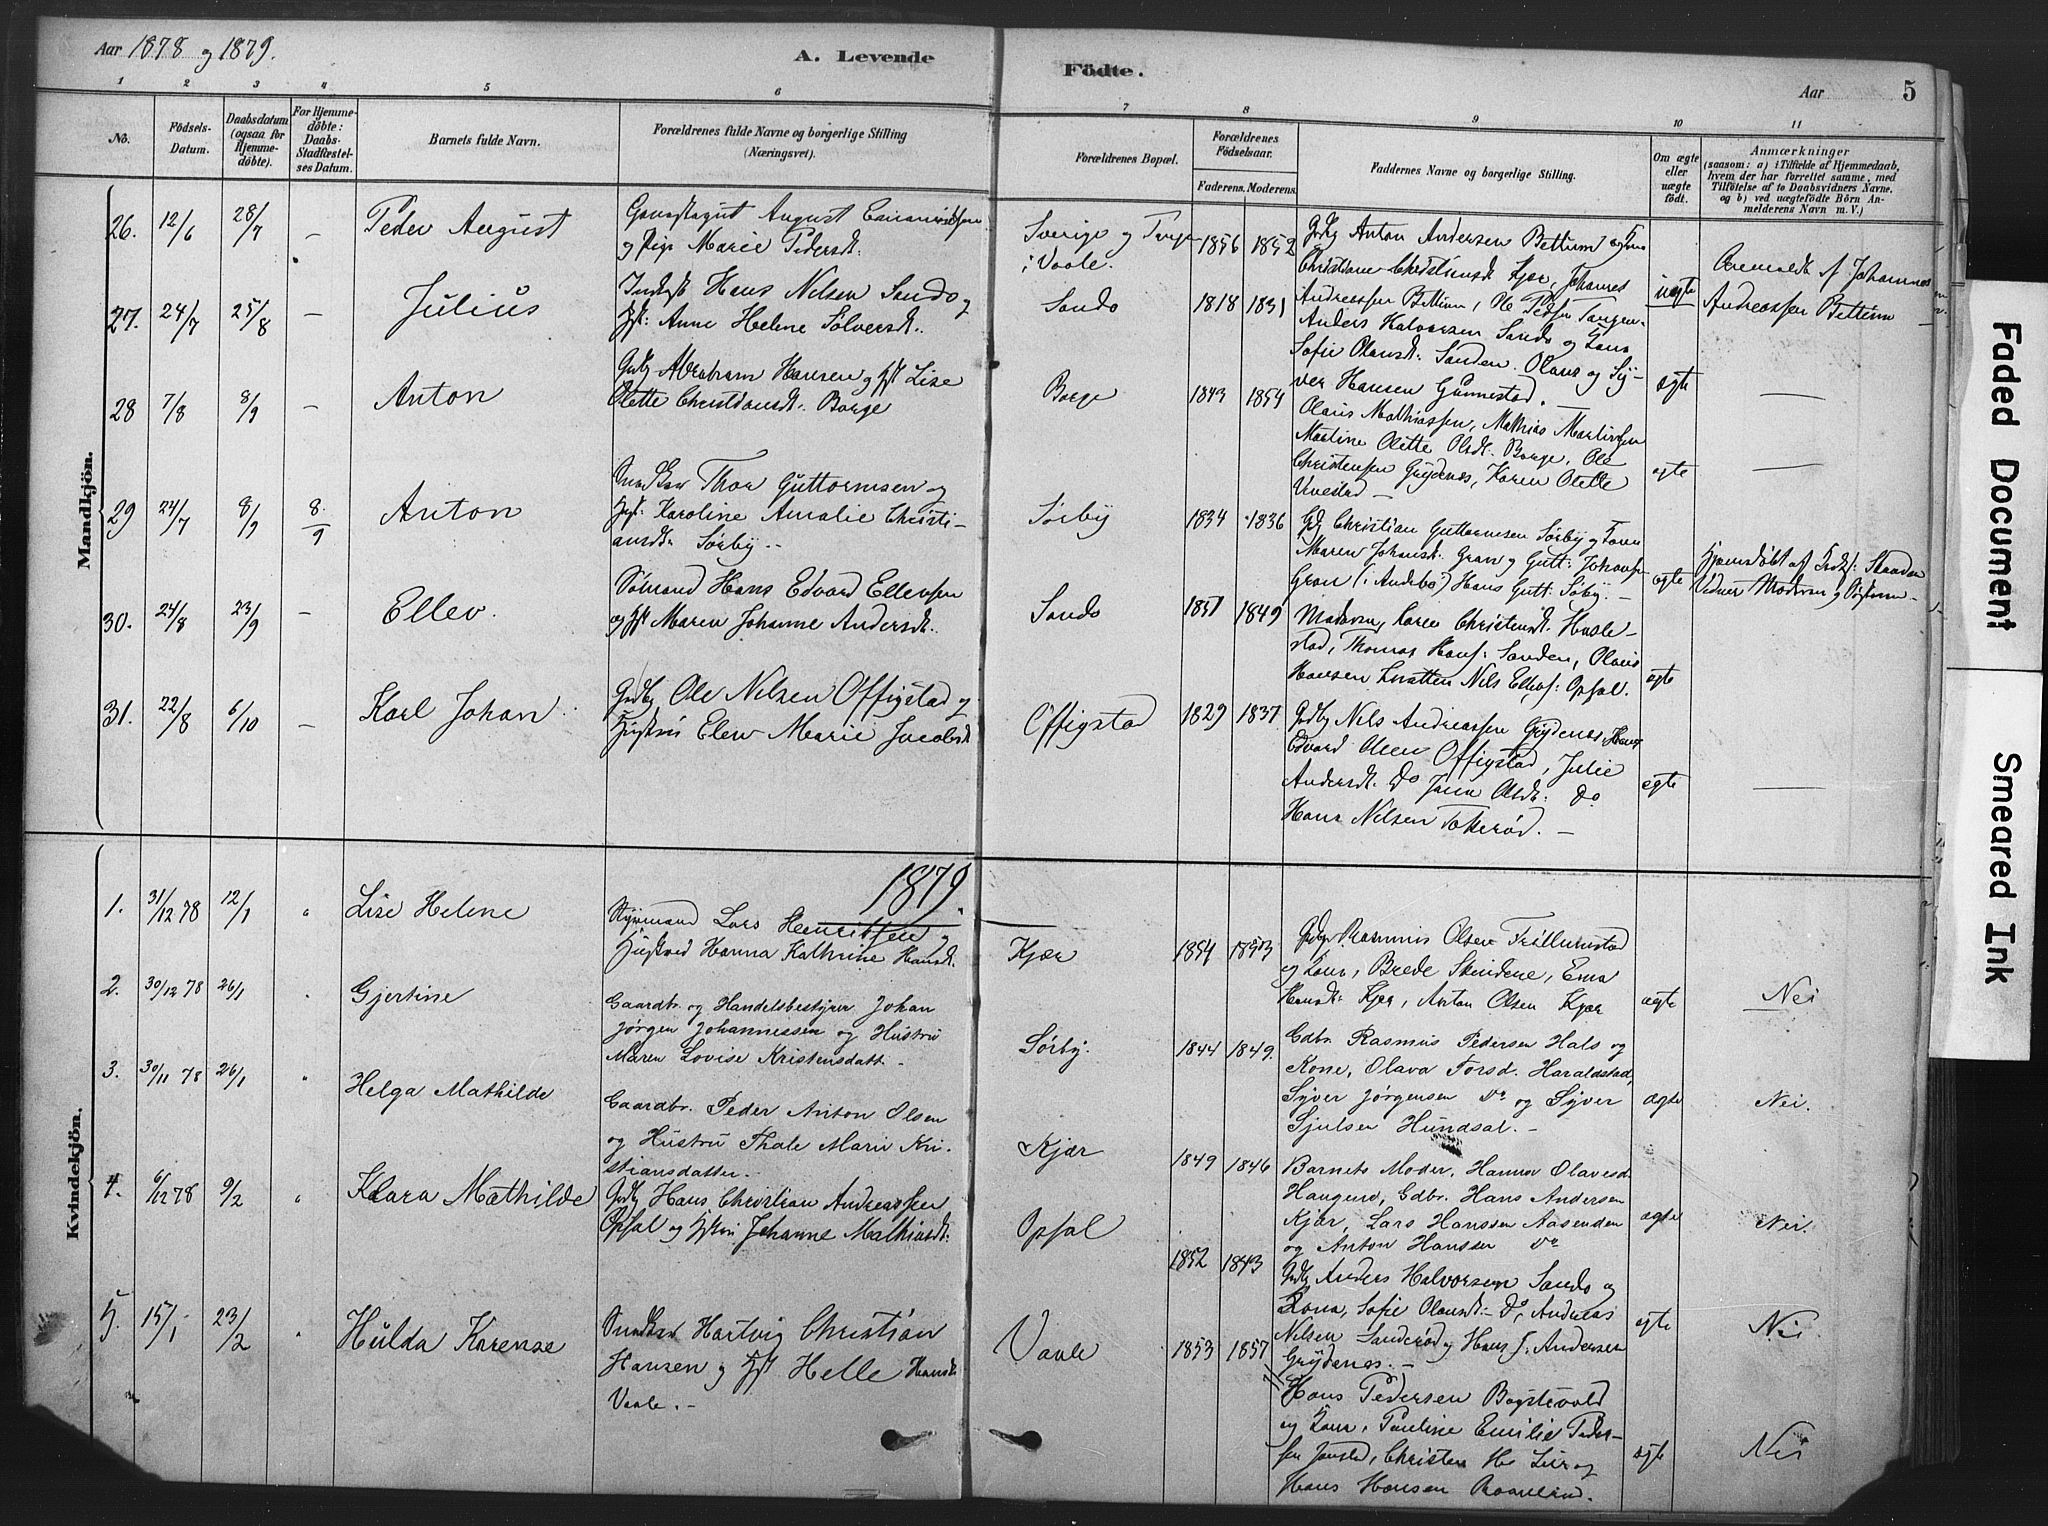 Aar 1878 og 1879.
A. Levende
Födte.
Aar
5
1 2 3 4 5 6 7 8 9 10 11
No.
Födsels-
Datum.
Daabsdatum
(ogsaa for
Hjemme-
döbte).
For Hjemme-
döbte:
Daabs-
Stadfæstel-
ses Datum.
Barnets fulde Navn.
Forældrenes fulde Navne og borgerlige Stilling
(Næringsvei).
Forældrenes Bopæl.
Forældrenes
Födselsaar.
Faderens. Moderens.
Faddernes Navne og borgerlige Stilling.
Om ægte
eller
uægte
födt.
Anmærkninger
(saasom: a) i Tilfælde af Hjemmedaab,
hvem der har forrettet samme, med
Tilföielse af to Daabsvidners Navne,
og b) ved uægtefödte Börn An-
melderens Navn m. V.)
Mandkjön.
26. 12/6 28/7 — Peder August
og Pige Marie Pedersdt:
Sverige og
i Vaale.
1856 1852
Gdbg Anton Andersen Bettum og
Christiansdt Kjær, Johannes
uægte
Anmeldt af Johannes
Andreassen Bettum
27. 24/7 25/8 — Julius
Inderst Hans Nilsen Sando og
Hst: Anne Helene Sølversdt:
Sando
1818 1831
Andreassen Bettum, Ole Peders: Tangen
Anders Halvorsen Sando og Kona
Sofie Olausdt: Sanden. Olaus og Sy-
ver Hansen Gunnestad.
ægte
—
28 7/8 8/9 — Anton
Gdbg Abraham Hansen og Hst Lise
Olette Christiansdt: Borge
Borge
1843 1854
Olaus Mathiassen, Mathias Martinsen
Martine Olette Olsdt. Borge, Ole
Christensen Grydenøs, Karen Olette
Unnestad —
ægte
—
29 24/7 8/9 8/9 Anton
Thor Guttormsen og
Hst: Karoline Amalie Christi-
ansdt: Sørby.-
Sørby
1834 1836
Gdbg Christian Guttormsen Sørby og Kona
Maren Johansdt: Gran og Gutt: Johans:
Gran (i Andebo) Hans Gutt: Søby. —
ægte
Hjemmedøbt af
Vidner Moderen og
30. 24/8 23/9 — Ellev.
Sømand Hans Edvard Ellevsen
og Hst Maren Johanne Andersdt:.
Sando
1851 1849
Moderen, Karen Christensdt. Hasle-
stad, Thomas Hans: Sanden, Olaus
Hansen Nils Ellefs: Opsal.
ægte
31. 22/8 6/10 — Karl Johan.
Gdbg Ole Nilsen Offigstad og
Hustru Elen Marie Jacobsdt
Offigstad
1829 1837
Gdbg Nils Andreassen Grydenøs, Hans
Edvard Olsen Offigstad, Julie
Andersdt. Do Jana Olsdt: Do
Hans Nilsen Tokerød. —
ægte
—
1879.
Kvindekjön.
1. 31/12 78 12/1 " Lise Helene
Styrmand Lars Henriksen og
Hustru Hanna Kathrine Hansdt.
Kjær
1854 1853
Gdbgr Rasmus Olsen Trollumstad
og Kona, Brede Skindene, Ema
Hansdt: Kjær, Anton Olsen Kjær
ægte
Nei
2. 30/12 78 26/1 " Gjertine
Gaardbr. og Handelsbestyrer Johan
Jørgen Johannessen og Hustru
Maren Lovise Kristensdatt. -
Sørby.
1844 1849.
Gdbr. Rasmus Pedersen Hals og
Kone, Olava Torsd. Haraldstad,
Syver Jørgensen Do og Syver
Sjulsen Hundsal. —
ægte
Nei.
3. 30/11 78 26/1 " Helga Mathilde
Gaardbr. Peder Anton Olsen
og Hustru Thale Marie Kri-
stiansdatter. -
Kjær
1849 1846
Barnets Moder, Hanna Olavesd.
Haugene, Gdbr. Hans Andersen
Kjær, Lars Hanssen Aasenden
og Anton Hanssen Do
ægte
Nei.
4. 6/12 78 9/2 " Klara Mathilde
Gdbg Hans Christian Andreassen
Opsal og Hstru Johanne Mathiasdt:
Opsal
1852 1843
Gdbg Anders Halvorsen Sando og
Kona, Sofie Olausdt: Do, Andreas
Nilsen Sanderød og Hans J. Andersen
Grydenøs. —
ægte
Nei
5. 15/1 23/2 " Hulda Karense
Hartvig Christian
Hansen og Hst Helle Hansdt
Vaale. -
Vaale
1853 1857
Hans Pedersen Bogstevold
og Kona, Pauline Emilie Peder-
sen Jonsted, Christen Hs Lier og
Hans Hansen Raanland.
ægte
Nei
Faded Document
Smeared Ink